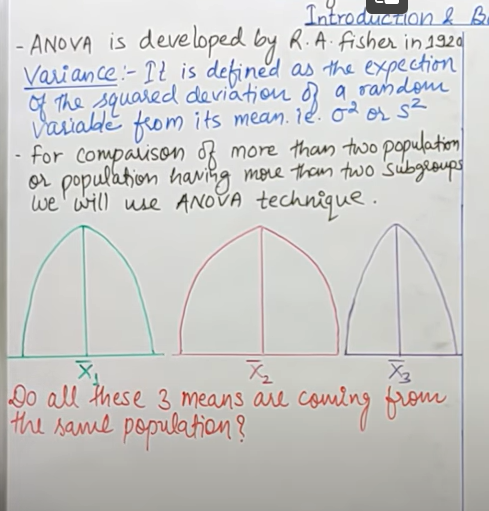 Introduction &
- ANOVA is developed by R.A. fisher in 1920
Variance:- It is defined as the expection
of the squared deviation of a random
Variable from its mean. ie. σ² or S²
- for comparison of more than two population
or population having more than two subgroups
we will use ANOVA technique.
X̅₁ X̅₂ X̅₃
Do all these 3 means are coming from
the same population?